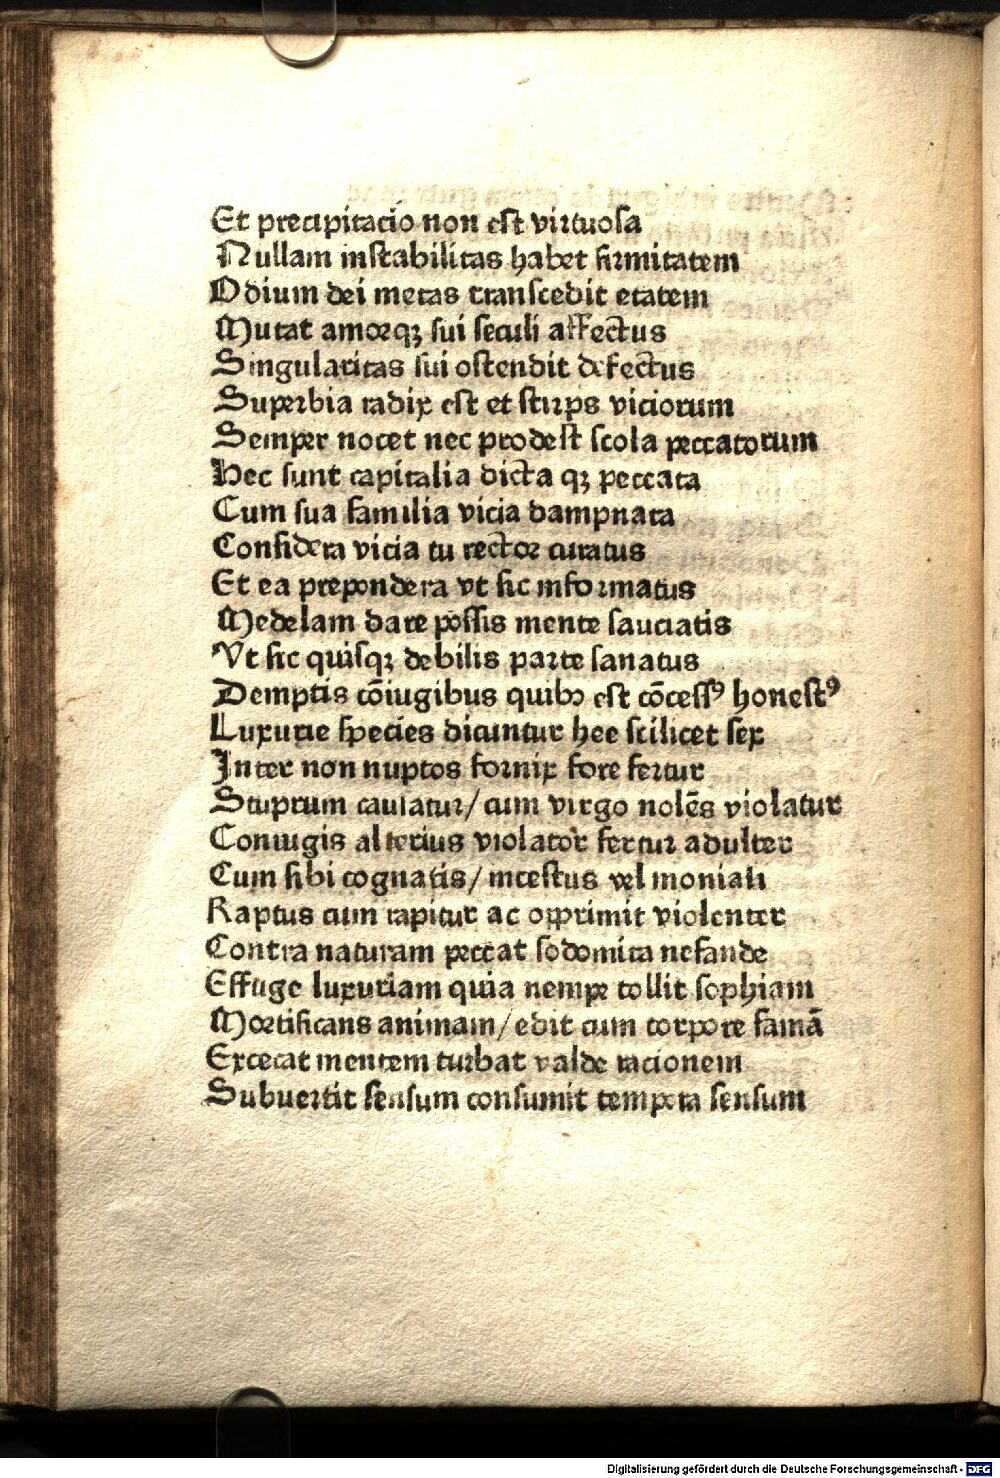 Et precipitacio non est virtuosa
Nullam instabilitas habet firmitatem
Odium dei metas transcedit etatem
Mutat amorqꝫ sui seculi affectus
Singularitas sui ostendit defectus
Superbia radix est et stirps viciorum
Semper nocet nec prodest scola peccatorum
Hec sunt capitalia dicta qꝫ peccata
Cum sua familia vicia dampnata
Considera vicia tu rector curatus
Et ea prepondera vt sic informatus
Medelam dare possis mente sauciatis
Vt sic quisqꝫ debilis parte sanatus
Demptis cōiugibus quibꝰ est cōcessꝰ honestꝰ
Luxurie species dicuntur hee scilicet sex
Inter non nuptos fornix fore fertur
Stuprum causatur/cum virgo nolēs violatur
Coniugis alterius violator fertur adulter
Cum sibi cognatis/incestus vel moniali
Raptus cum rapitur ac opprimit violenter
Contra naturam peccat sodomita nefande
Effuge luxuriam quia nempe tollit sophiam
Mortificans animam/edit cum corpore famā
Excecat mentem turbat valde racionem
Subuertit sensum consumit tempora sensum
Digitalisierung gefördert durch die Deutsche Forschungsgemeinschaft - DFG